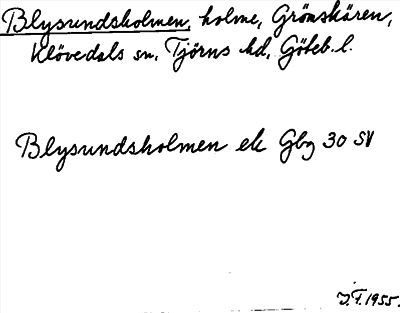 Blysundsholmen, holme, Grönskären,
Klövedals sn, Tjörns hd, Göteb. l.
Blysundsholmen ek Gbg 30 SV
J.F. 1955.